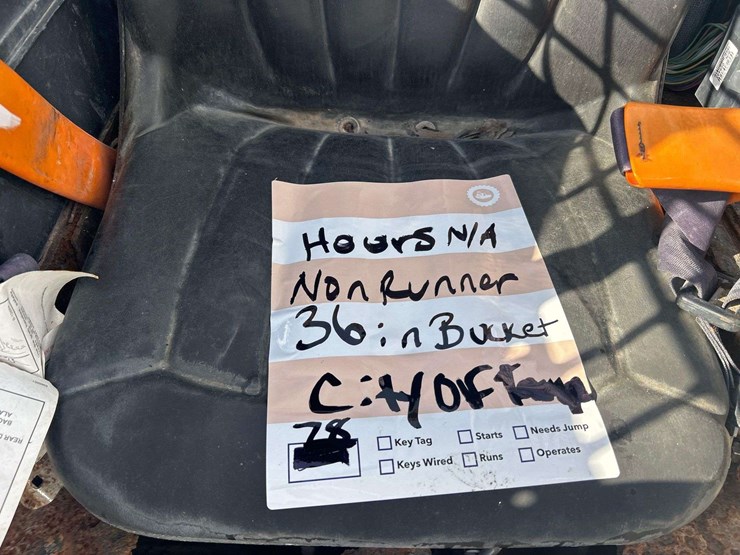 Hours N/A
Non Runner
36in Bucket
City Of
78
Key Tag
Starts
Needs Jump
Keys Wired
Runs
Operates